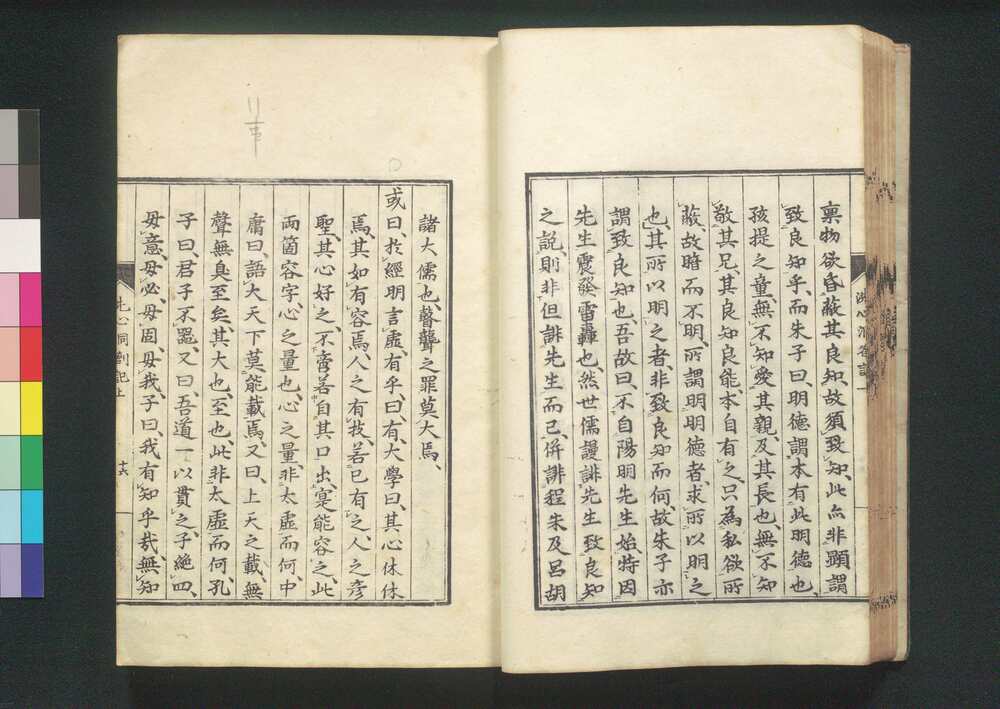 稟物欲昏蔽其良知故須致知此亦非顕謂
致良知乎而朱子曰明德謂本有此明德也
孩提之童無不知愛其親及其長也無不知
敬其兄其良知良能本自有之只為私欲所
蔽故暗而不明所謂明明德者求所以明之
也其所以明之者非致良知而何故朱子亦
謂致良知也吾故曰不自陽明先生始特因
先生震發雷轟也然世儒謾誹先生致良知
之説則非但誹先生而已併誹程朱及呂胡
諸大儒也瞽聾之罪莫大焉
或曰於經明言虛有乎曰有大學曰其心休休
焉其如有容焉人之有技若已有之人之彦
聖其心好之不啻若自其口出寔能容之此
両箇容字心之量也心之量非太虛而何中
庸曰語大天下莫能載焉又曰上天之載無
聲無臭至矣其大也至也此非太虛而何孔
子曰君子不器又曰吾道一以貫之子絶四
毋意毋必毋固毋我子曰我有知乎哉無知
洗心洞劄記上
十六